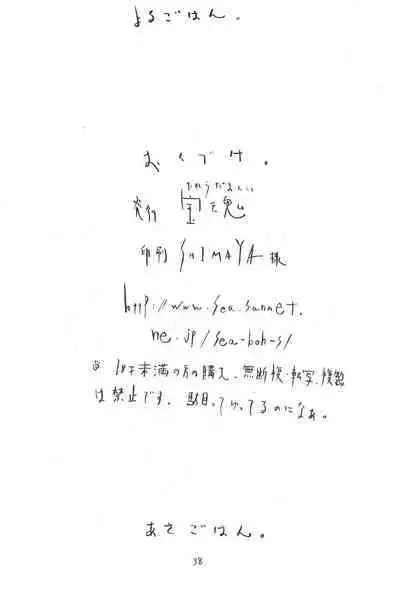 よるごはん。
おくづけ。
たからだましい
発行 宝魂
印刷 SHIMAYA様
http://www.sea.sannet.
ne.jp/sea-boh-s/
※ 18才未満の方の購入、無断複・転写、複製
は禁止です。駄目っていってるのになぁ。
あさごはん。
38